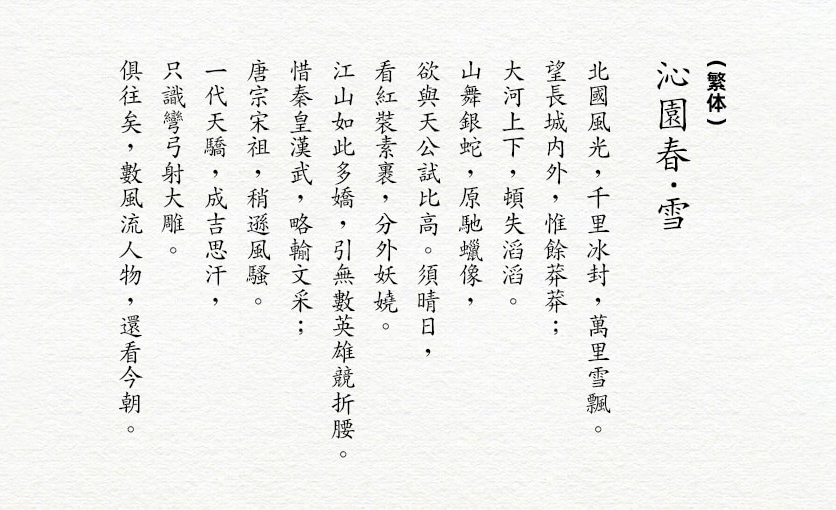 （繁体）
沁園春·雪
北國風光，千里冰封，萬里雪飄。
望長城内外，惟餘莽莽；
大河上下，頓失滔滔。
山舞銀蛇，原馳蠟像，
欲與天公試比高。須晴日，
看紅裝素裹，分外妖嬈。
江山如此多嬌，引無數英雄競折腰。
惜秦皇漢武，略輸文采；
唐宗宋祖，稍遜風騷。
一代天驕，成吉思汗，
只識彎弓射大雕。
俱往矣，數風流人物，還看今朝。